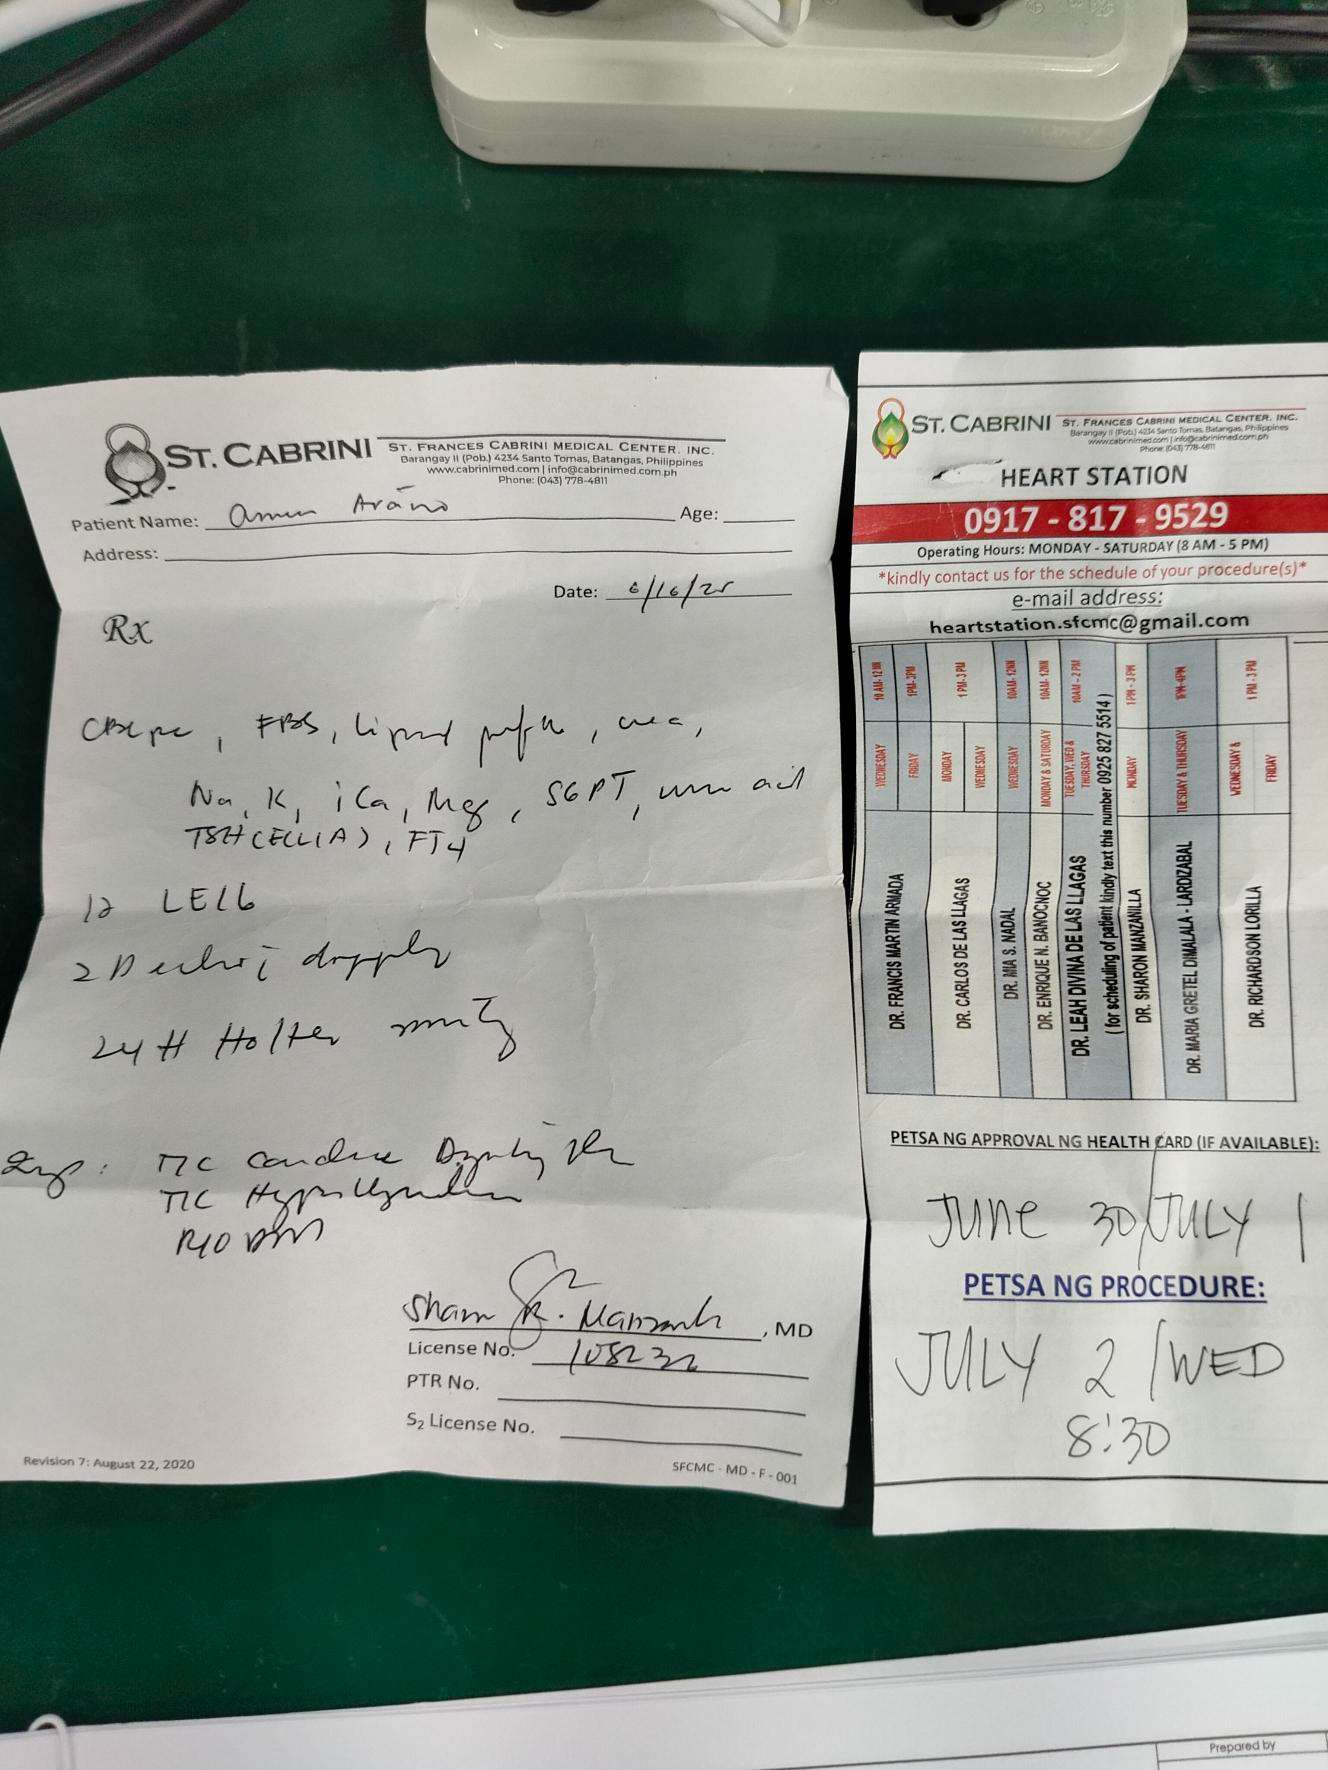 ST. CABRINI
ST. FRANCES CABRINI MEDICAL CENTER, INC.
Barangay II (Pob.) 4234 Santo Tomas, Batangas, Philippines
www.cabrinimed.com | info@cabrinimed.com.ph
Phone: (043) 778-4811
Patient Name: Age:
Address:
Date: 6/16/25
Rx
CBC pc, FBS, lipid profile, crea,
Na, K, iCa, Mg, SGPT, uric acid
TSH (ECLIA), FT4
12 LECG
2D echo doppler
24H Holter
Imp: T/C Cardiac
T/C
R/O DM
, MD
License No. 108232
PTR No.
S2 License No.
Revision 7: August 22, 2020
SFCMC - MD - F - 001
ST. CABRINI
ST. FRANCES CABRINI MEDICAL CENTER, INC.
Barangay II (Pob.) 4234 Santo Tomas, Batangas, Philippines
www.cabrinimed.com | info@cabrinimed.com.ph
Phone: (043) 778-4811
HEART STATION
0917 - 817 - 9529
Operating Hours: MONDAY - SATURDAY (8 AM - 5 PM)
*kindly contact us for the schedule of your procedure(s)*
e-mail address:
heartstation.sfcmc@gmail.com
DR. FRANCIS MARTIN ARMADA WEDNESDAY 10 AM-12NN
FRIDAY 1PM-3PM
DR. CARLOS DE LAS LLAGAS MONDAY 1 PM-3 PM
WEDNESDAY
DR. MIA S. NADAL WEDNESDAY 10AM-12NN
DR. ENRIQUE N. BANOCNOC MONDAY & SATURDAY 10AM-12NN
DR. LEAH DIVINA DE LAS LLAGAS TUESDAY, WED & THURSDAY 10AM - 2 PM
( for scheduling of patient kindly text this number 0925 827 5514 )
DR. SHARON MANZANILLA MONDAY 1 PM - 3 PM
DR. MARIA GRETEL DIMALALA - LARDIZABAL TUESDAY & THURSDAY 1PM-4PM
DR. RICHARDSON LORILLA WEDNESDAY & FRIDAY 1 PM - 3 PM
PETSA NG APPROVAL NG HEALTH CARD (IF AVAILABLE):
JUNE 30/JULY 1
PETSA NG PROCEDURE:
JULY 2 / WED
8:30
Prepared by